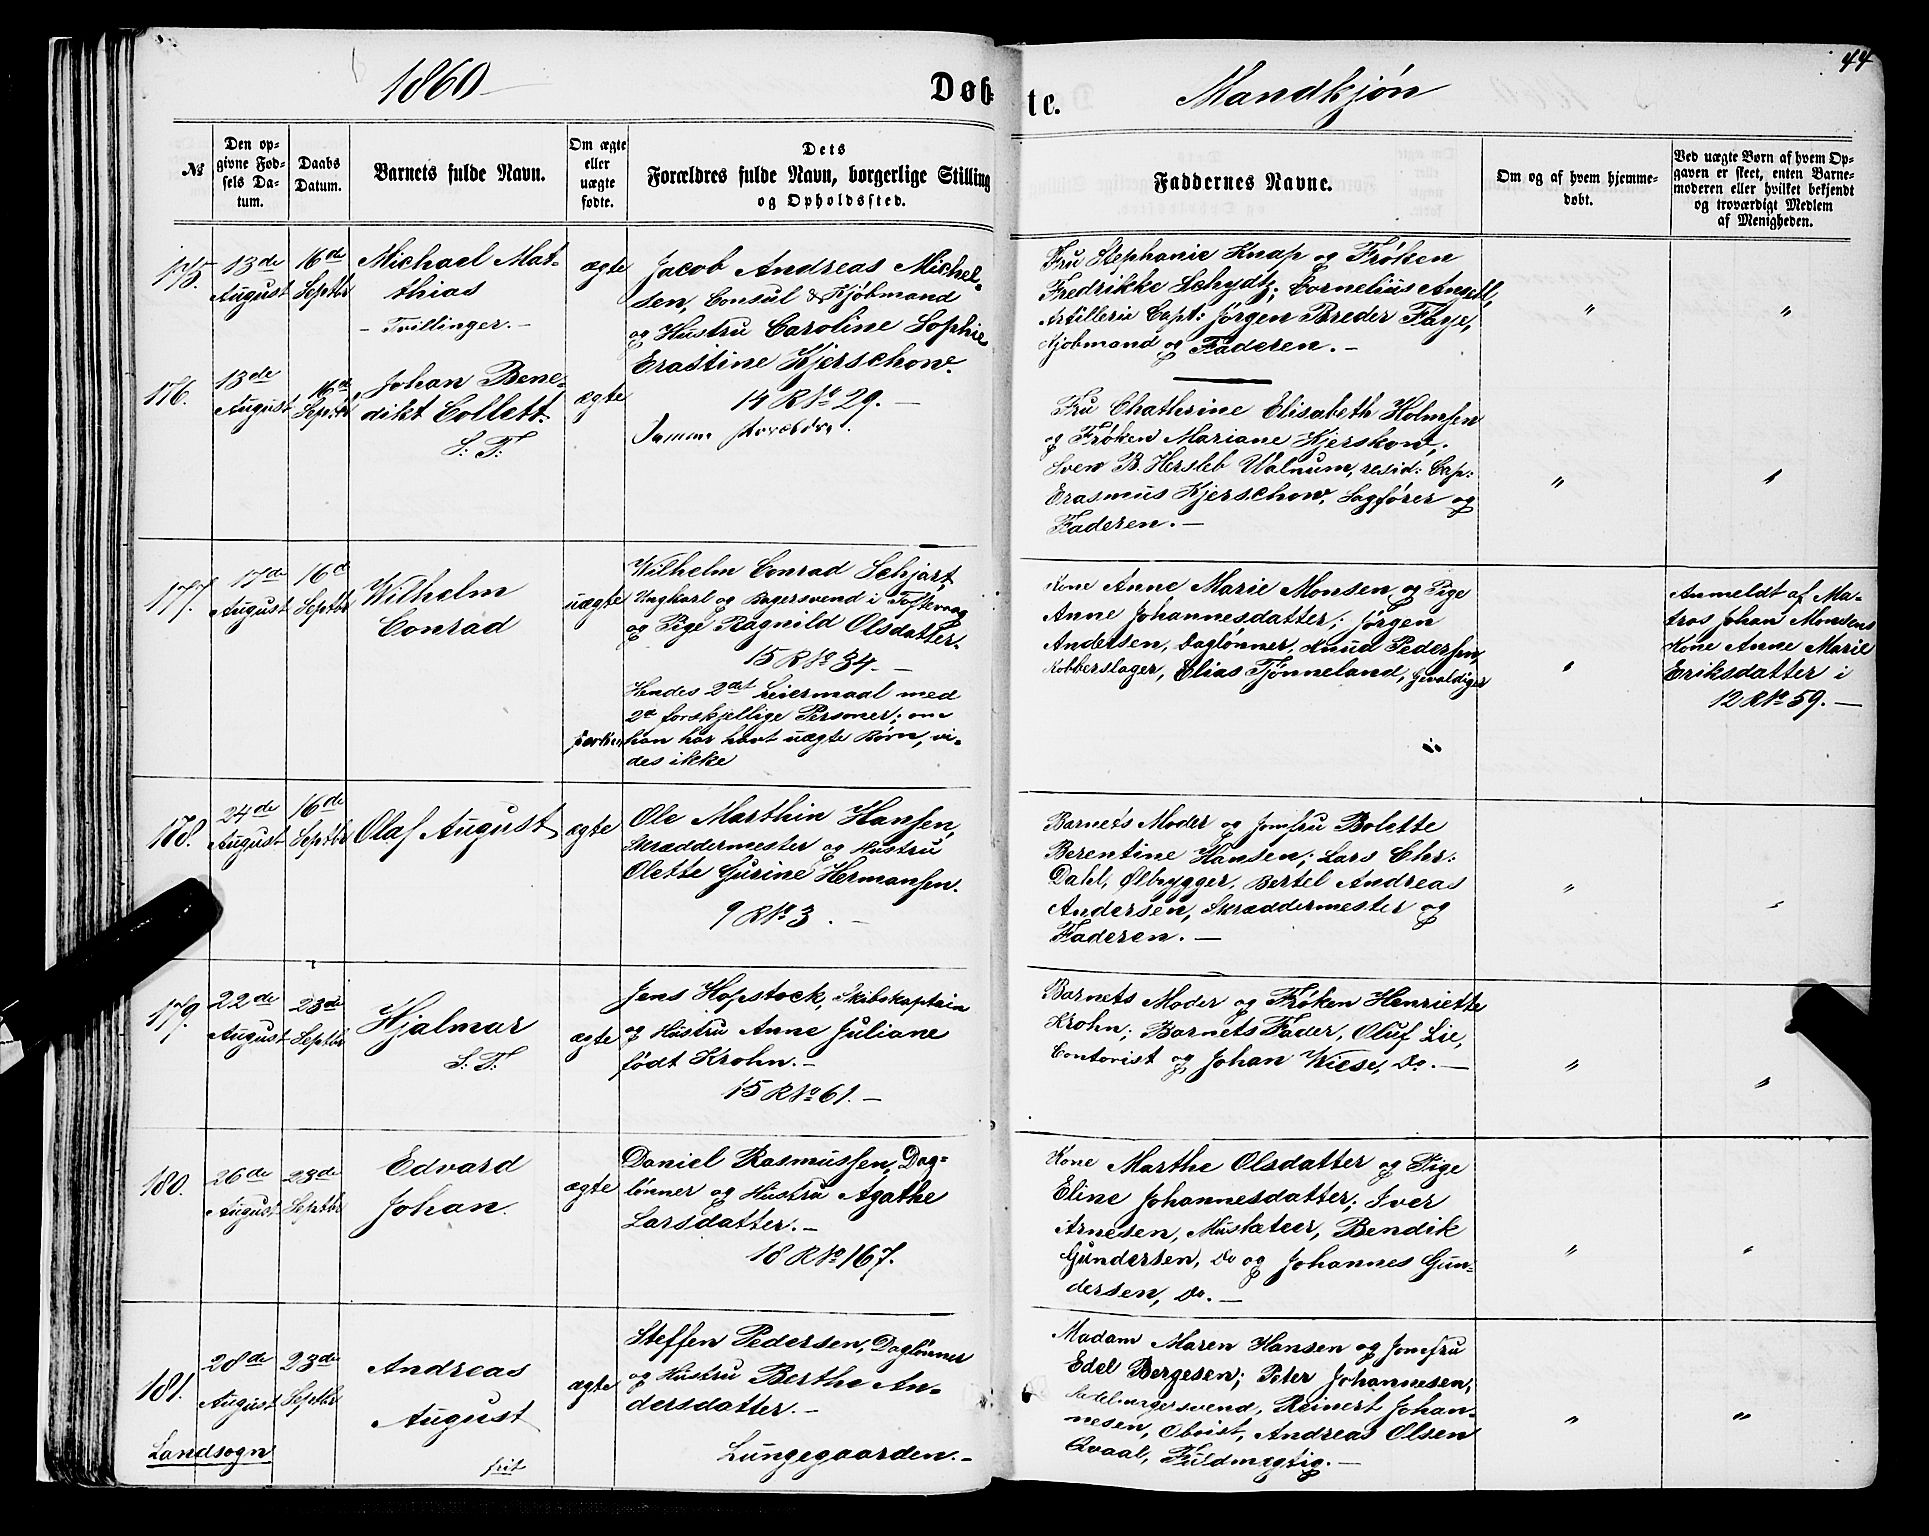 44
1860
Døb-
te.
Mandkjøn
№
Den op-
givne Fød-
sels Da-
tum.
Daabs
Datum.
Barnets fulde Navn.
Om ægte
eller
uægte
fødte.
Dets
Forældres fulde Navn, borgerlige Stilling
og Opholdssted.
Faddernes Navne.
Om og af hvem hjemme-
døbt.
Ved uægte Børn af hvem Op-
gaven er skeet, enten Barne-
moderen eller hvilket bekjendt
og troværdigt Medlem
af Menigheden.
175.
13de
August
16de
Septbr
Michael Mat-
thias
- Tvillinger. -
ægte
Jacob Andreas Michel-
sen, Consul & Kjøbmand
og Hustru Caroline Sophie
Erastine Kjerschow.
14 R № 29. -
Fru Stephanie Knap og Frøken
Fredrikke Schydtz; Cornelius Ansell,
Artillerie Capt: Jørgen Breder Faye,
Kjøbmand og Faderen. -
"
"
176.
13de
August
16de
Septbr
Johan Bene-
dikt Collett.
S. T:
ægte
Samme Forældre.
Fru Chathrine Elisabeth Holmsen
og Frøken Mariane Kjerskow,
Sven B. Hersleb Walnum, resid: Cap:
Erasmus Kjerschow, Sagfører og
Faderen. -
"
"
177.
17de
August
16d
Septbr
Wilhelm
Conrad
uægte
Wilhelm Conrad Schjørt,
Ungkarl og Bagersvend i Toftevaag
og Pige Ragnild Olsdatter.
15 R № 34. -
Hendes 2det Leiermaal med
2de forskjellige Personer; om
han har havt uægte Børn, vi-
des ikke
Kone Anne Marie Monsen og Pige
Anne Johannesdatter; Jørgen
Andersen, Daglønner, Knud Pedersen,
Kobberslager, Elias Tjønneland, Gevaldiger
"
Anmeldt af Ma-
tros Johan Monsens
Kone Anne Marie
Eriksdatter i
12 R № 59. -
178.
24de
August
16de
Septbr
Olaf August
ægte
Ole Marthin Hansen,
Skræddermester og Hustru
Olette Gurine Hermansen.
9 R № 3. -
Barnets Moder og Jomfru Bolette
Berentine Hansen; Lars Chr:
Dahl, Ølbrygger, Bertel Andreas
Andersen, Skræddermester og
Faderen. -
"
"
179.
22de
August
23de
Septbr
Hjalmar
S. T:
ægte
Jens Hopstock, Skibskaptain
og Hustru Anne Juliane
født Krohn. -
15 R № 61. -
Barnets Moder og Frøken Henriette
Krohn; Barnets Fader, Oluf Lie,
Contorist og Johan Wiese, Do. -
"
"
180.
26de
August
23de
Septbr
Edvard
Johan.
ægte
Daniel Rasmussen, Dag-
lønner og Hustru Agathe
Larsdatter. -
18 R № 167.
Kone Marthe Olsdatter og Pige
Eline Johannesdatter; Iver
Arnesen, Musketeer, Bendik
Gundersen, Do og Johannes Gun-
dersen, Do. -
"
"
181.
28de
August
23de
Septbr
Landsogn
Andreas
August
frit
ægte
Steffen Pedersen, Daglønner
og Hustru Berthe An-
dersdatter. -
Lungegaarden. -
Madam Maren Hansen og Jomfru
Edel Bergesen; Peter Johannesen,
Sadelmagersvend, Reinert Johan-
nesen, Oboist, Andreas Olsen
Qvaal, Fuldmægtig. -
"
"